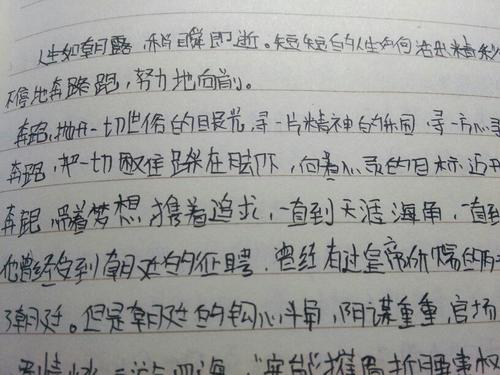 人生如朝露，稍瞬即逝。短短的人生如何活出精彩
不停地奔路跑，努力地向前。
奔跑，抛开一切世俗的目光，寻一片精神的乐园，寻一方心灵
奔跑，把一切困难踩在脚下，向着心灵的目标迈开
奔跑，带着梦想，携着追求，一直到天涯海角，一直到
他曾经受到朝廷的征聘，曾经有过皇帝价赐的
了朝廷。但是朝廷的钩心斗角，阴谋重重，官场
四海，"安能摧眉折腰事权